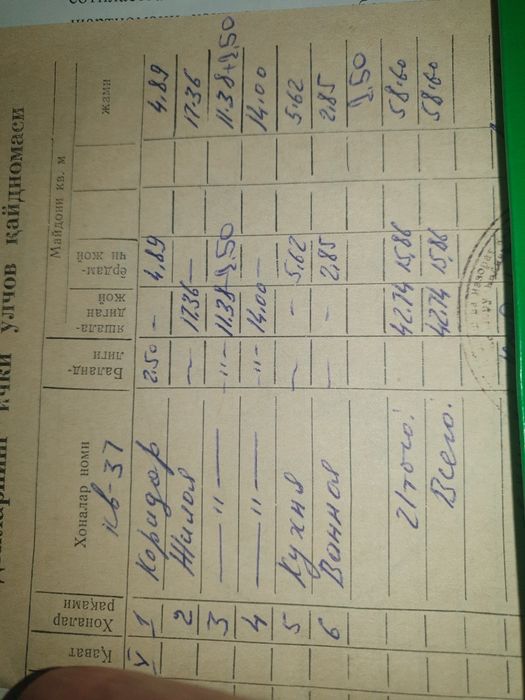 ички улчов қайдномаси
Қават
Хоналар рақами
Хоналар номи
Баланд- лиги
Майдони кв. м
яшала- диган жой
ёрдам- чи жой
жами
кв-37
V 1 Коридор 2.50 – 4,89 4,89
2 Жилая 17.36 – 17.36
3 — " — -"- 11.38 2,50 11.38+2,50
4 — " — -"- 14.00 – 14.00
5 Кухня – 5,62 5,62
6 Ванная – 2.85 2.85
2,50
Итого: 42.74 15,86 58.60
Всего: 42.74 15,86 58.60